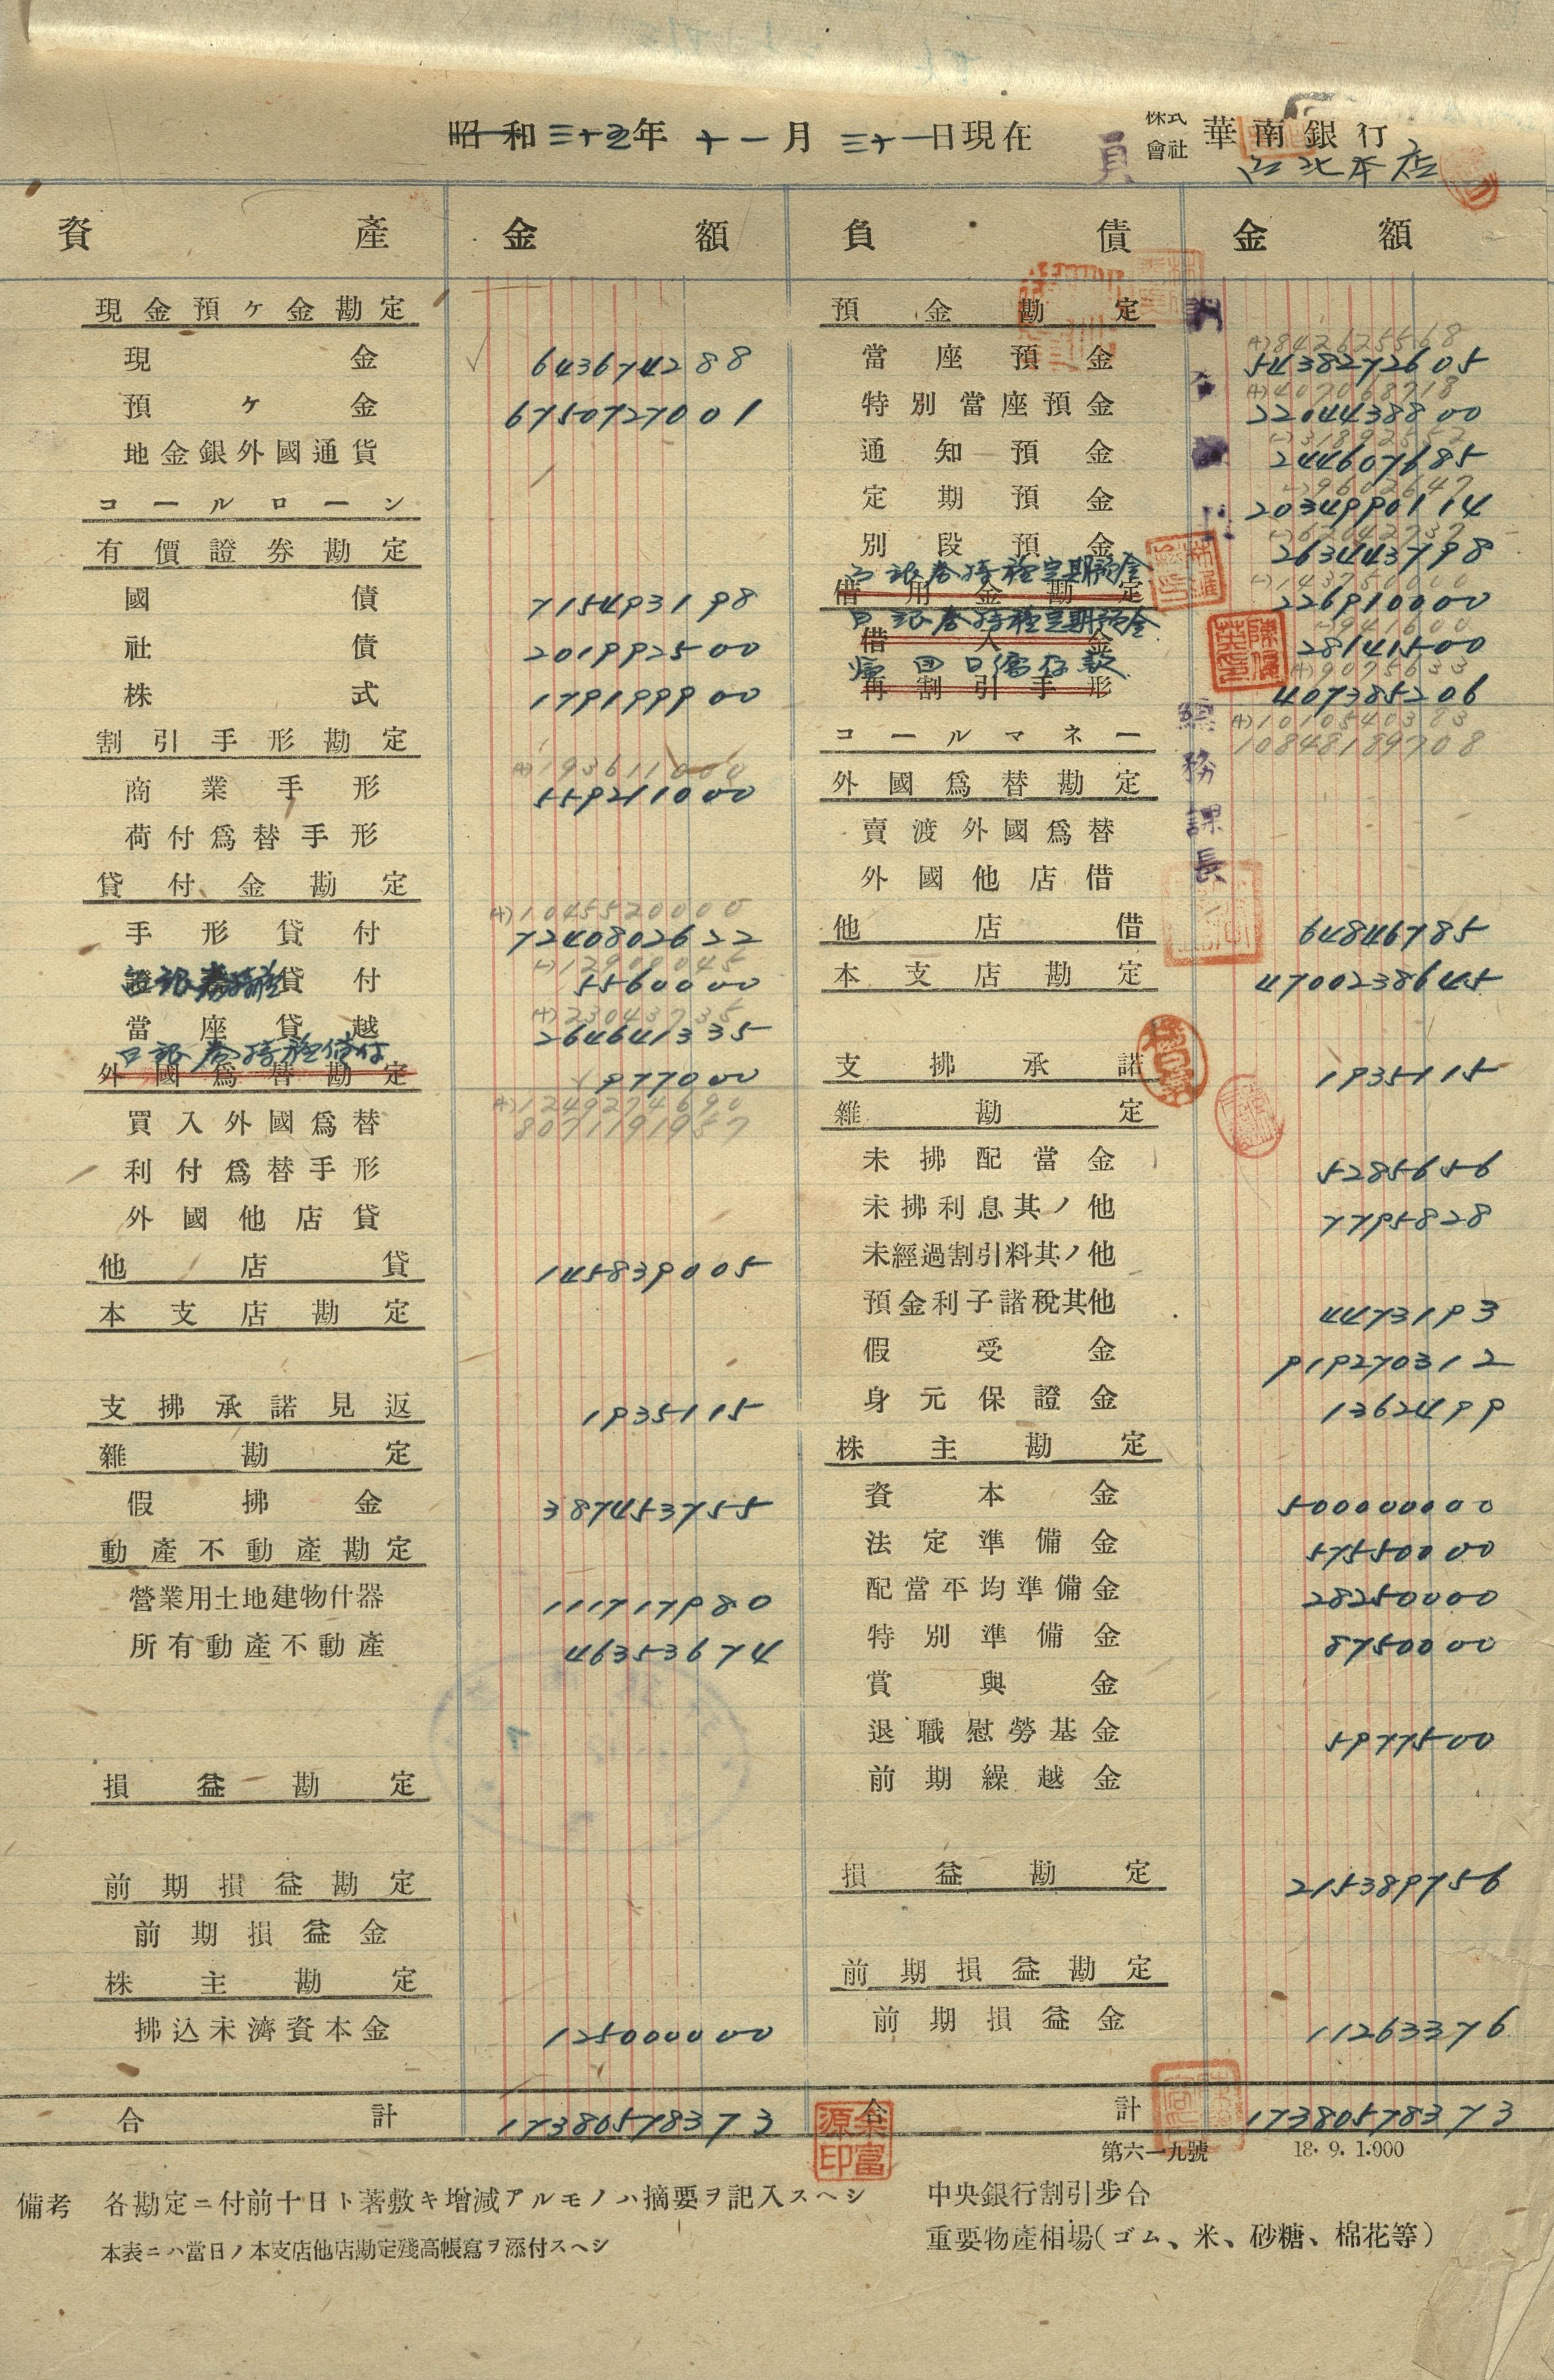 昭和三十五年 十一月 三十一日現在
株式會社 華南銀行
台北本店
員
資產 金額 負債 金額
現金預ヶ金勘定
現金 643674288
預ヶ金 67507727001
地金銀外國通貨
コールローン
有價證券勘定
國債 715493198
社債 201992500
株式 179199900
割引手形勘定
(+)193611000
商業手形 559211000
荷付爲替手形
貸付金勘定
(+)1045520000
手形貸付 7240802622
(-)12900045
貸付 5560000
(+)23043735
當座貸越 264641335
日銀券特種貸付
外國爲替勘定 977000
(+)1249274690
8071191957
買入外國爲替
利付爲替手形
外國他店貸
他店貸 145839005
本支店勘定
支拂承諾見返 1935115
雜勘定
假拂金 387453755
動產不動產勘定
營業用土地建物什器 111717980
所有動產不動產 46353674
損益勘定
前期損益勘定
前期損益金
株主勘定
拂込未濟資本金 125000000
合計 17380578373
預金勘定
(+)842625568
當座預金 5438272605
(+)407068718
特別當座預金 2204438800
(-)31892552
通知預金 244607685
(-)9602647
定期預金 2034990114
(-)62042737
別段預金 263443798
台銀券特種定期預金
(-)143750000
借用金勘定 226910000
日銀券特種定期預金
(-)941600
借入金 28141500
(+)9075633
再割引手形 407385206
(+)1010540383
10848189708
コールマネー
外國爲替勘定
賣渡外國爲替
外國他店借
他店借 64846785
本支店勘定 4700238645
支拂承諾 1935115
雜勘定
未拂配當金 5285656
未拂利息其ノ他 7795828
未經過割引料其ノ他
預金利子諸稅其他 4473193
假受金 919270312
身元保證金 1362499
株主勘定
資本金 500000000
法定準備金 5755000
配當平均準備金 28250000
特別準備金 8750000
賞與金
退職慰勞基金 5977500
前期繰越金
損益勘定 215389756
前期損益勘定
前期損益金 11263376
合計 17380578373
總務課長
余富源印
第六一九號 18.9.1.000
備考 各勘定ニ付前十日ト著敷キ增減アルモノハ摘要ヲ記入スヘシ
本表ニハ當日ノ本支店他店勘定殘高帳寫ヲ添付スヘシ
中央銀行割引步合
重要物產相場(ゴム、米、砂糖、棉花等)